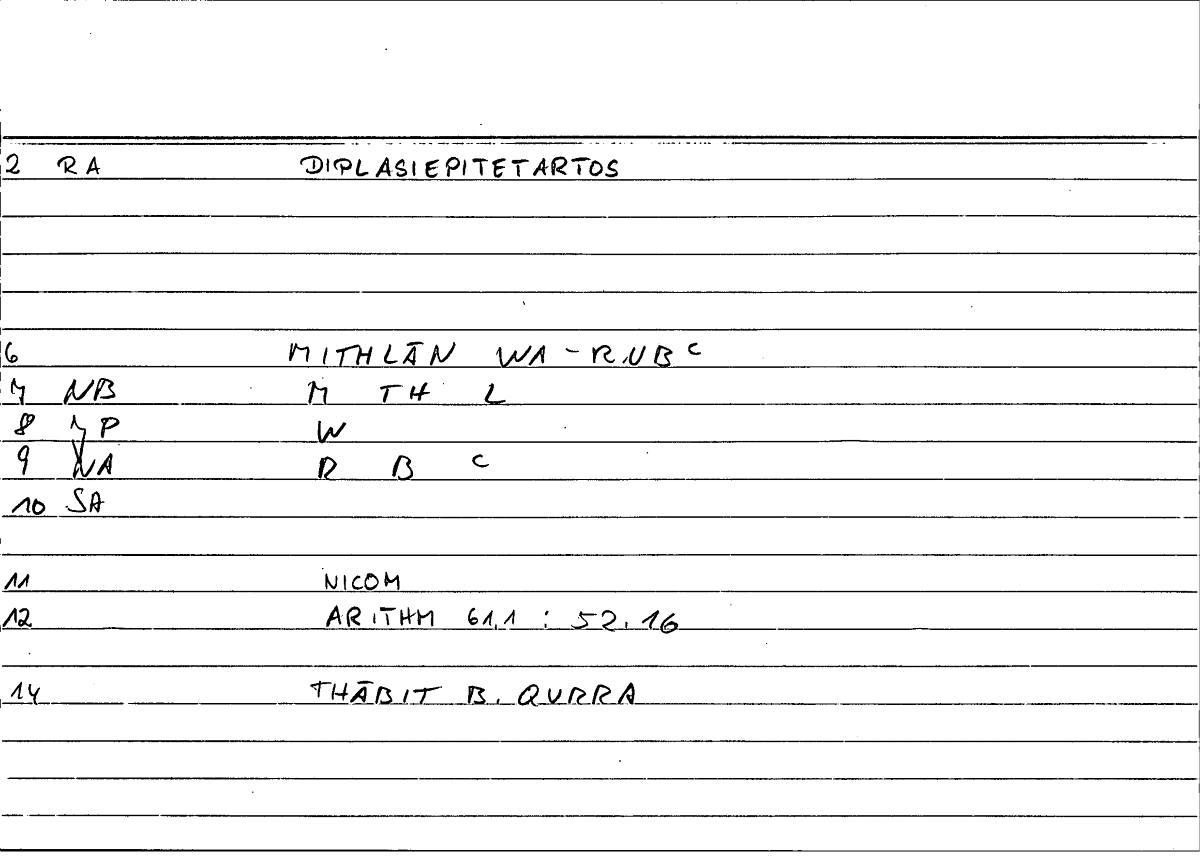 2 RA DIPLASIEPITETARTOS
6 MITHLĀN WA-RUBᶜ
7 NB M TH L
8 P W
9 NA R B ᶜ
10 SA
11 NICOM
12 ARITHM 61,1 : 52.16
14 THĀBIT B. QURRA